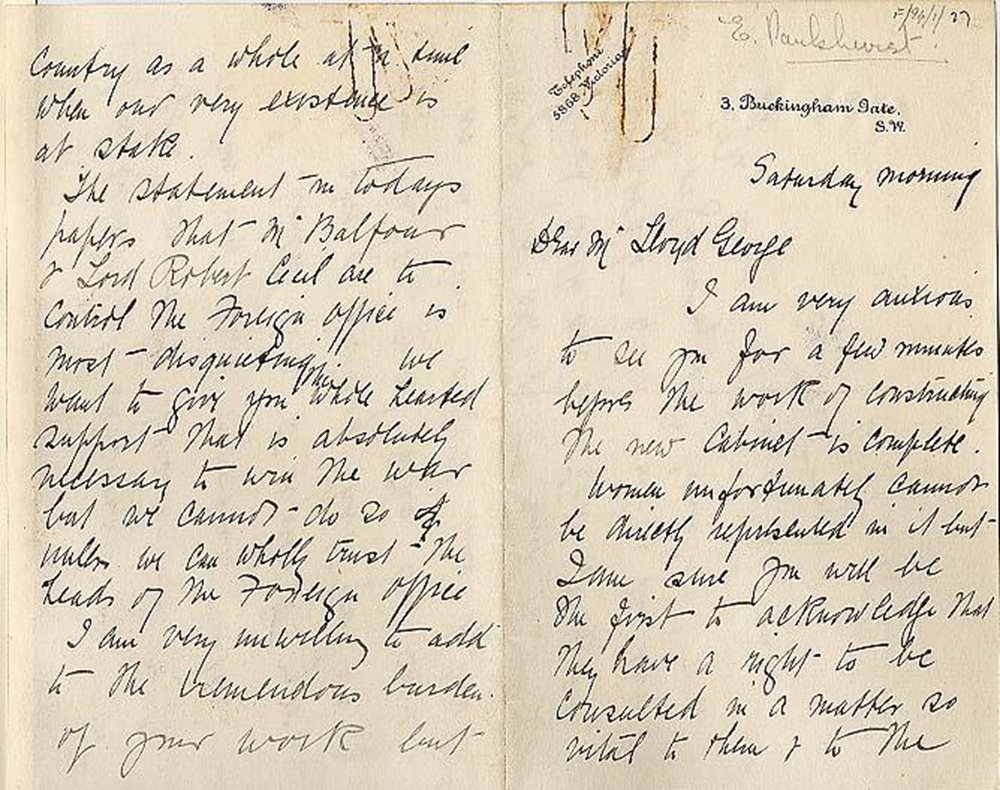 F/94/1/27
E. Pankhurst.
Telephone
5868 Victoria
3, Buckingham Gate,
S.W.
Saturday morning
Dear Mr Lloyd George
I am very anxious
to see you for a few minutes
before the work of constructing
the new Cabinet is complete.
Women unfortunately cannot
be directly represented in it but
I am sure you will be
the first to acknowledge that
they have a right to be
consulted in a matter so
vital to them & to the
country as a whole at a time
when our very existence is
at stake.
The statement in todays
papers that Mr Balfour
& Lord Robert Cecil are to
control the Foreign office is
most disquieting. We
want to give you the whole hearted
support that is absolutely
necessary to win the war
but we cannot do so
unless we can wholly trust the
heads of the Foreign office
I am very unwilling to add
to the tremendous burden
of your work but